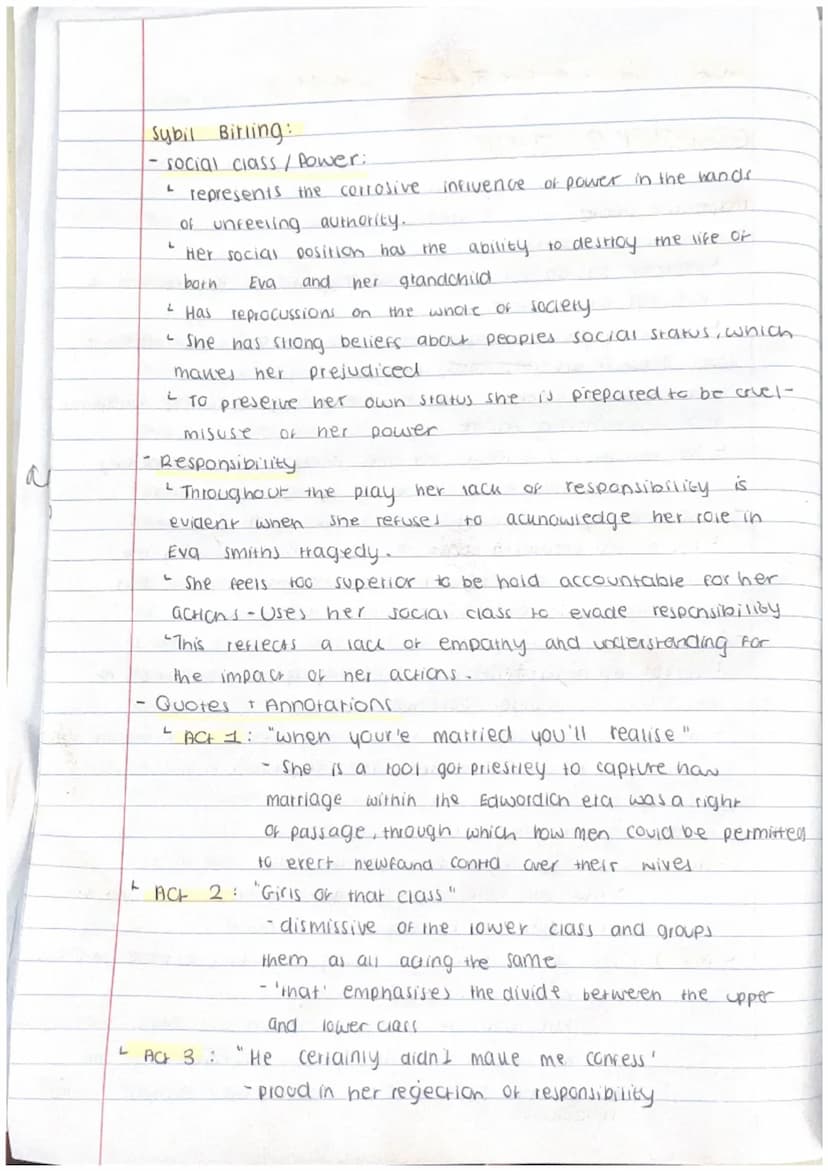 Sybil Birling:
- Social class / Power:
↳ represents the corrosive influence of power in the hands
of unfeeling authority.
↳ Her social position has the ability to destroy the life of
both Eva and her grandchild
↳ Has reprocussions on the whole of society
↳ She has strong beliefs about peoples social status, which
makes her prejudiced
↳ To preserve her own status she is prepared to be cruel -
misuse of her power
- Responsibility
↳ Throughout the play her lack of responsibility is
evident when she refuses to acknowledge her role in
Eva Smiths tragedy.
↳ She feels too superior to be hold accountable for her
actions - Uses her social class to evade responsibility
↳ This reflects a lack of empathy and understanding for
the impact of her actions.
- Quotes + Annotations
↳ Act 1: "when your'e married you'll realise"
- She is a tool got priestley to capture how
marriage within the Edwordian era was a right
of passage, through which how men could be permitted
to exert newfound control over their wives
↳ Act 2: "Girls of that class"
- dismissive of the lower class and groups
them as all acting the same
- 'that' emphasises the divide between the upper
and lower class
↳ Act 3: "He certainly didn't make me confess'
- proud in her rejection of responsibility